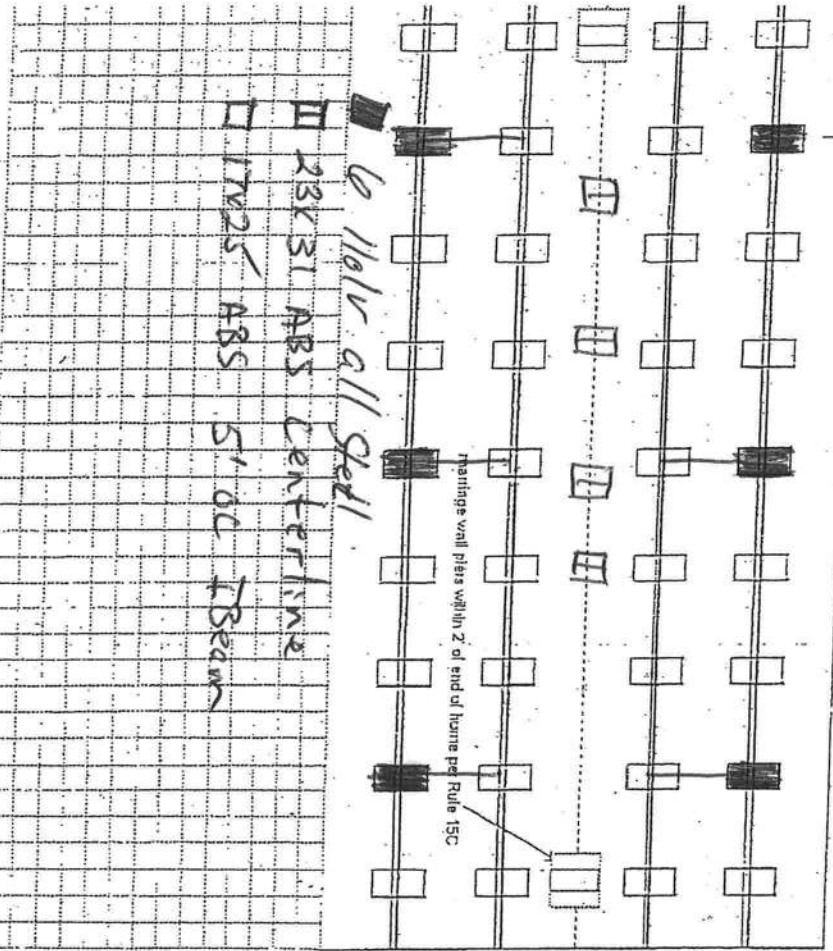 marriage wall piers within 2' of end of home per Rule 15C
all Steel
23x31 ABS Centerline
17x25 ABS 5' OC IBeam